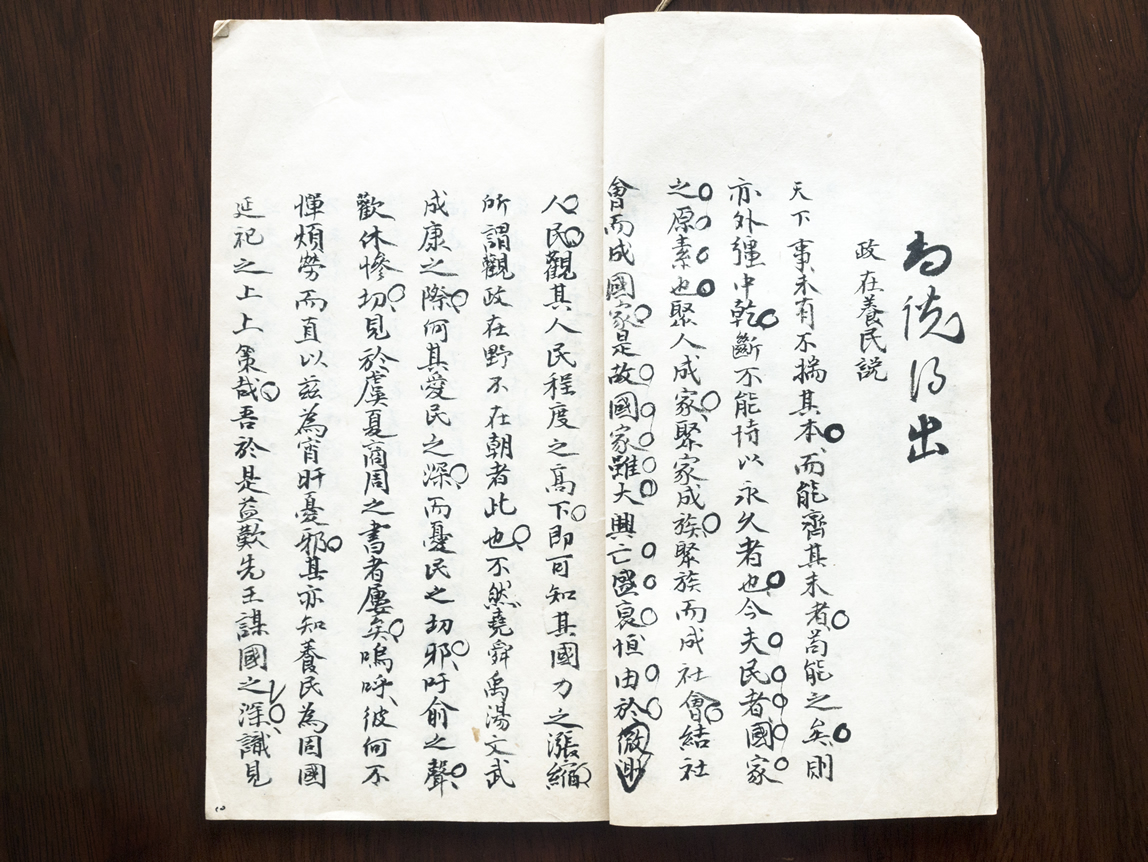 尚說得出
政在養民説
天下事未有不揣其本而能齊其末者苟能之矣則
亦外彊中乾斷不能恃以永久者也今夫民者國家
之原素也聚人成家聚家成族聚族而成社會結社
會而成國家是故國家雖大興亡盛衰恒由於微眇
人民觀其人民程度之高下即可知其國力之漲縮
所謂觀政在野不在朝者此也不然堯舜禹湯文武
成康之際何其愛民之深而憂民之切邪吁俞之聲
歡休慘切見於虞夏商周之書者屢矣嗚呼彼何不
憚煩勞而直以兹為宵旰憂邪其亦知養民為固國
延祀之上上策哉吾於是益歎先王謀國之深識見